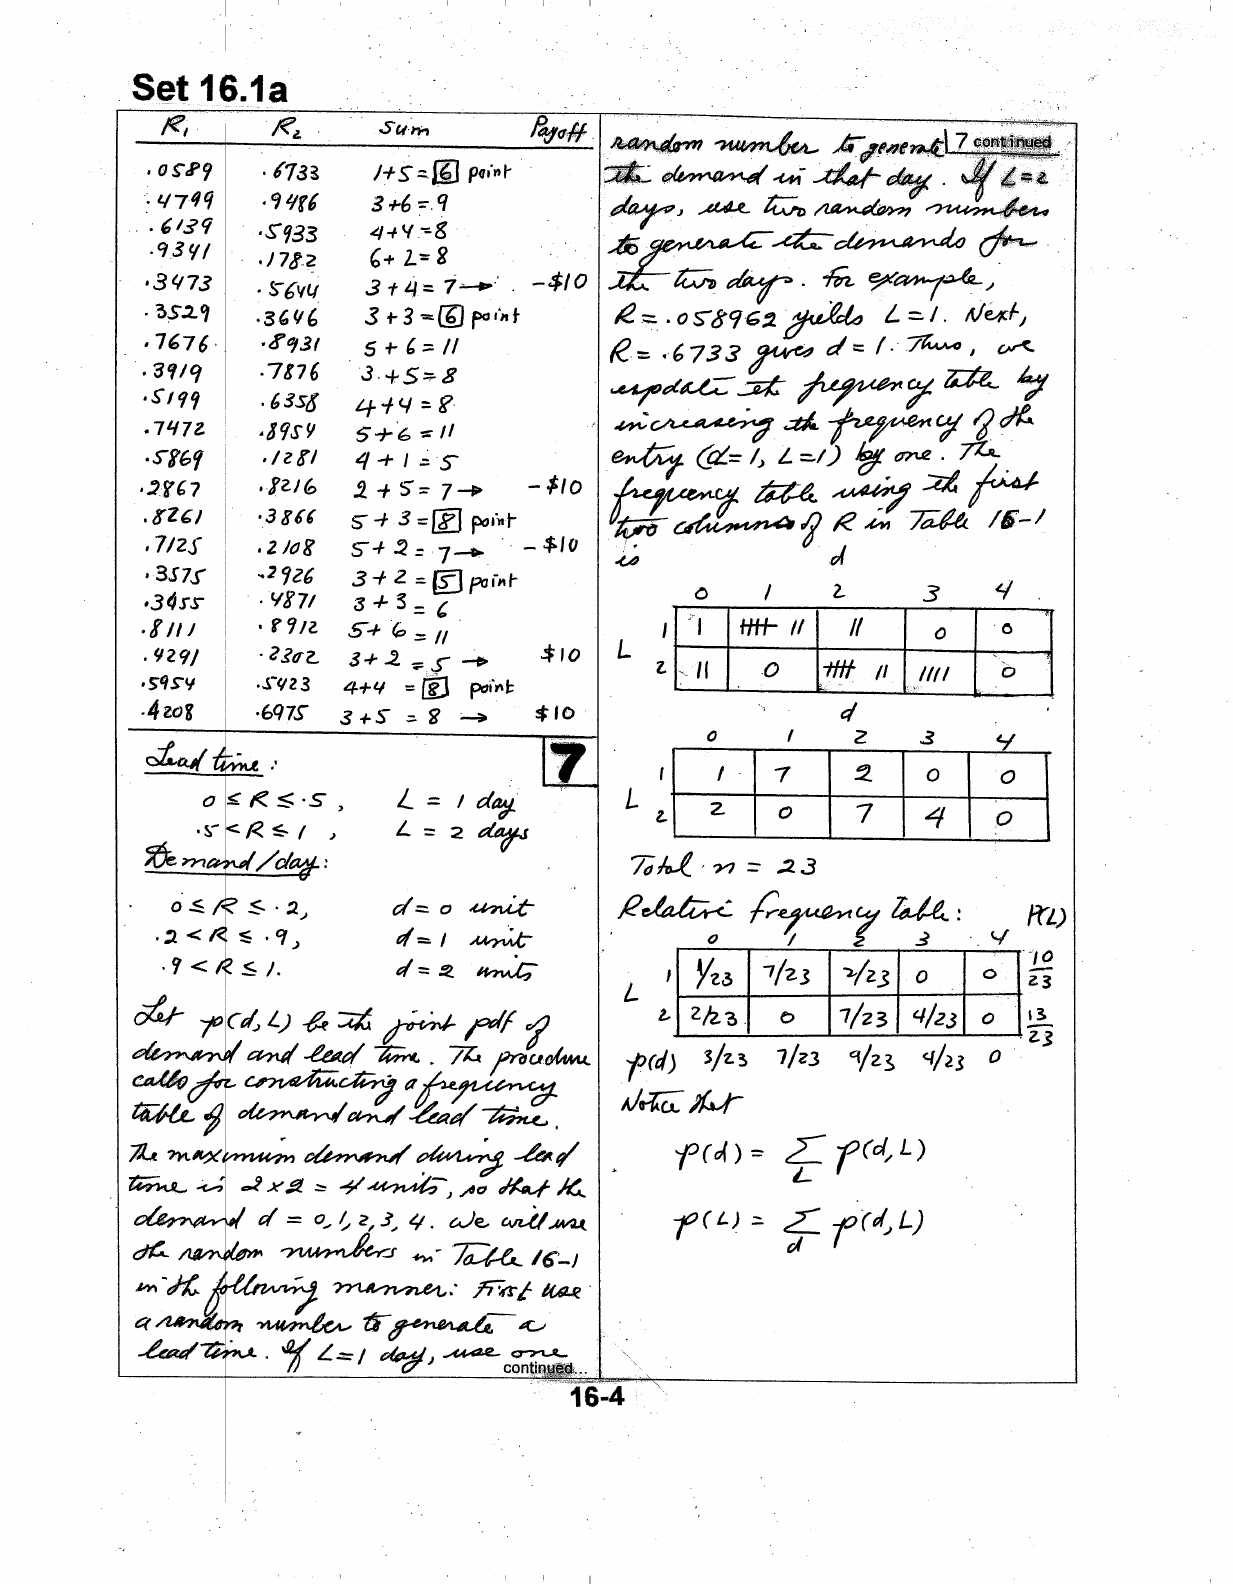 Set 16.1a
R₁ R₂ Sum Payoff
.0589 .6733 1+5=6 point
.4799 .9486 3+6=.9
.6139 .5933 4+4=8
.9341 .1782 6+2=8
.3473 .5644 3+4=7→ -$10
.3529 .3646 3+3=6 point
.7676 .8931 5+6=11
.3919 .7876 3+5=8
.5199 .6358 4+4=8
.7472 .8954 5+6=11
.5869 .1281 4+1=5
.2867 .8216 2+5=7→ -$10
.8261 .3866 5+3=8 point
.7125 .2108 5+2=7→ -$10
.3575 .2926 3+2=5 point
.3455 .4871 3+3=6
.8111 .8912 5+6=11
.4291 .2302 3+2=5→ $10
.5954 .5423 4+4=8 point
.4208 .6975 3+5=8→ $10
7
Lead time:
0≤R≤.5, L=1 day
.5<R≤1, L=2 days
Demand/day:
0≤R≤.2, d=0 unit
.2<R≤.9, d=1 unit
.9<R≤1. d=2 units
Let p(d,L) be the joint pdf of
demand and lead time. The procedure
calls for constructing a frequency
table of demand and lead time.
The maximum demand during lead
time is 2x2=4 units, so that the
demand d=0,1,2,3,4. We will use
the random numbers in Table 16-1
in the following manner: First use
a random number to generate a
lead time. If L=1 day, use one
continued...
random number to generate 7 continued
the demand in that day. If L=2
days, use two random numbers
to generate the demands for
the two days. For example,
R=.058962 yields L=1. Next,
R=.6733 gives d=1. Thus, we
update the frequency table by
increasing the frequency of the
entry (d=1, L=1) by one. The
frequency table using the first
two columns of R in Table 16-1
is
d
0 1 2 3 4
L 1 | |||| || || 0 0
2 || 0 |||| || |||| 0
d
0 1 2 3 4
L 1 1 7 2 0 0
2 2 0 7 4 0
Total n=23
Relative frequency table: P(L)
0 1 2 3 4
L 1 1/23 7/23 2/23 0 0 10/23
2 2/23 0 7/23 4/23 0 13/23
p(d) 3/23 7/23 9/23 4/23 0
Notice that
p(d)=Σ_L p(d,L)
p(L)=Σ_d p(d,L)
16-4